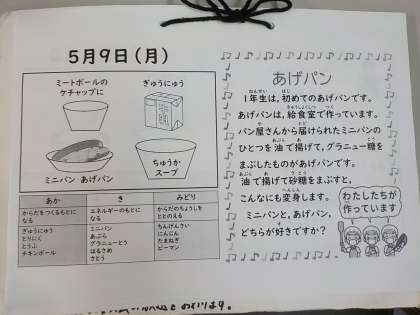 5月9日(月)
ミートボールの
ケチャップに
ぎゅうにゅう
ミニパン あげパン
ちゅうか
スープ
あか
き
みどり
からだをつくるもとに
なる
エネルギーのもとに
なる
からだのちょうしを
ととのえる
ぎゅうにゅう
とりにく
とうふ
チキンボール
ミニパン
あぶら
グラニューとう
はるさめ
さとう
ちんげんさい
にんじん
たまねぎ
ピーマン
あげパン
1年生は、初めてのあげパンです。
あげパンは、給食室で作っています。
パン屋さんから届けられたミニパンの
ひとつを油で揚げて、グラニュー糖を
まぶしたものがあげパンです。
油で揚げて砂糖をまぶすと、
こんなにも変身します。
ミニパンと、あげパン、
どちらが好きですか?
わたしたちが
作っています